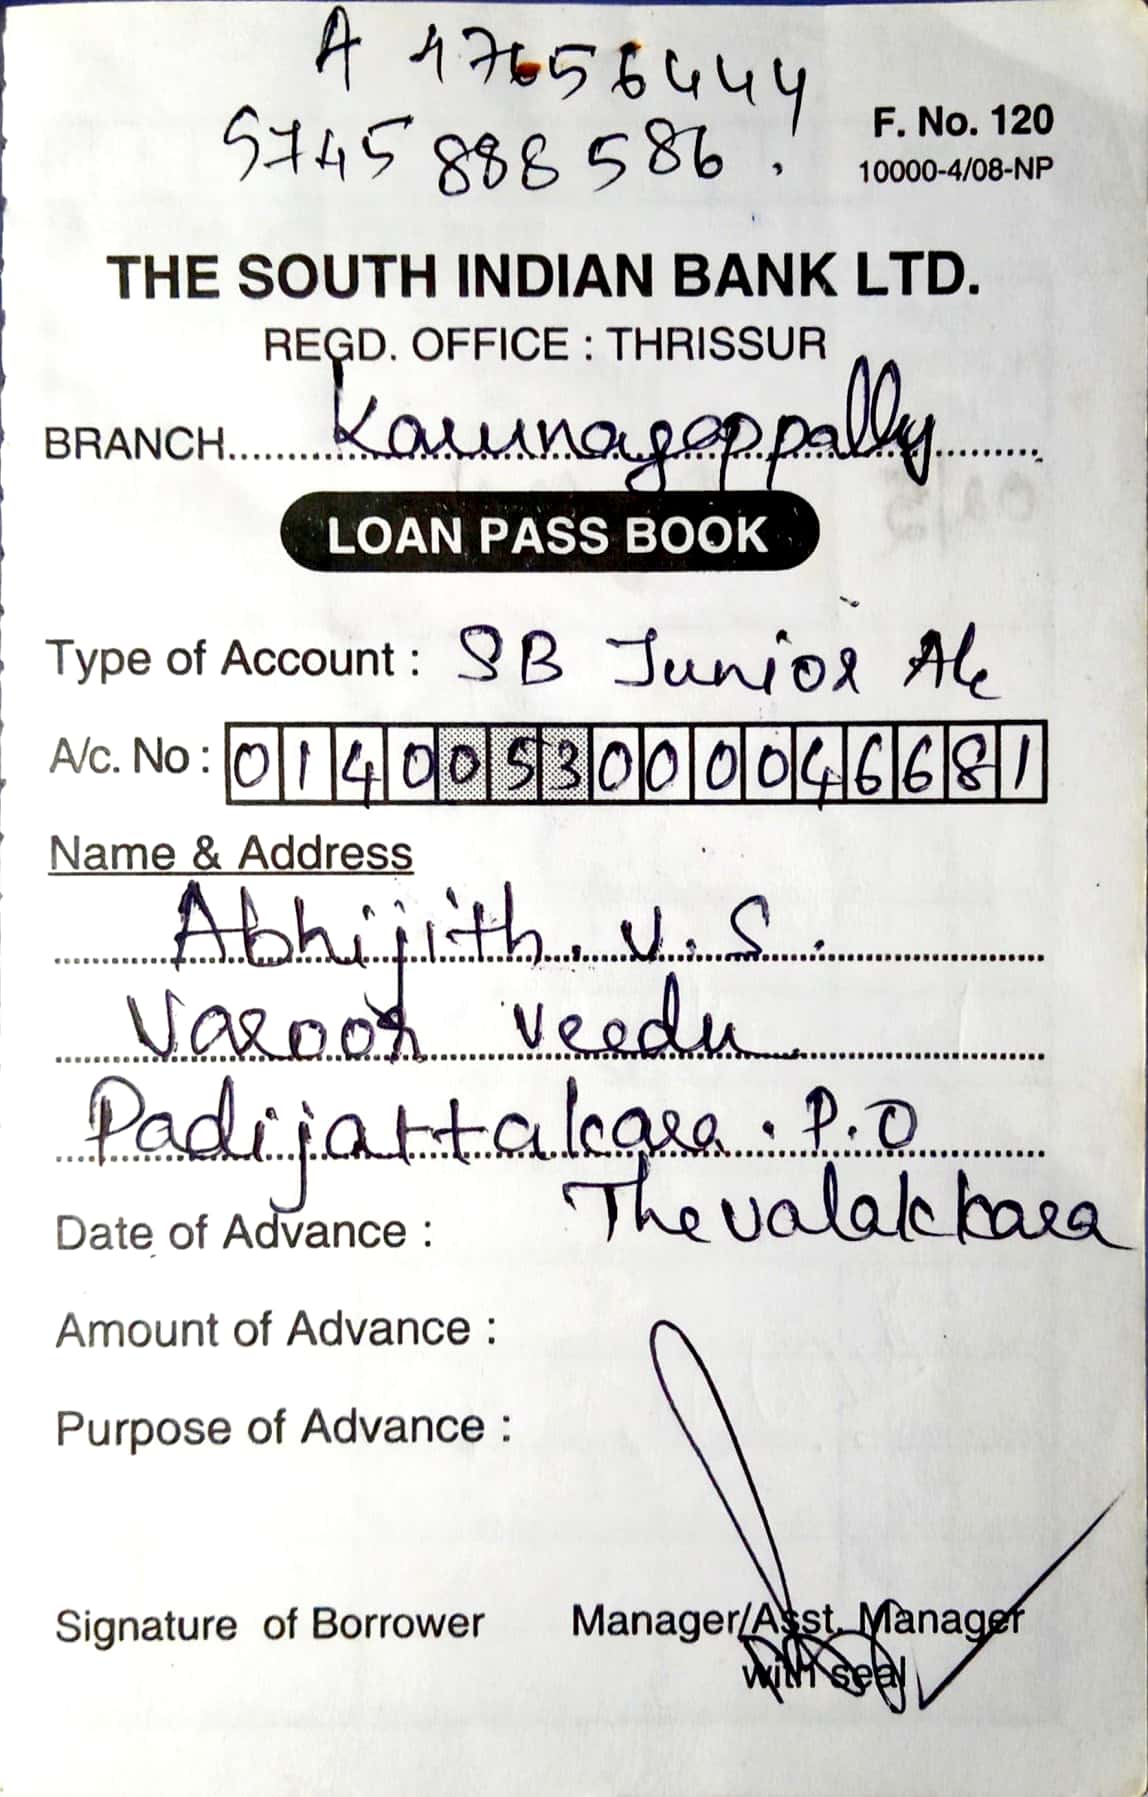 A 47656444
5745 888 586 .
F. No. 120
10000-4/08-NP
THE SOUTH INDIAN BANK LTD.
REGD. OFFICE : THRISSUR
BRANCH.......... Karunagappally ..........
LOAN PASS BOOK
Type of Account : SB Junior A/c
A/c. No : 0140053000046681
Name & Address
Abhijith. V. S.
Varoor veedu
Padijattakara . P.O
Thevalakkara
Date of Advance :
Amount of Advance :
Purpose of Advance :
Signature of Borrower
Manager/Asst. Manager
with seal